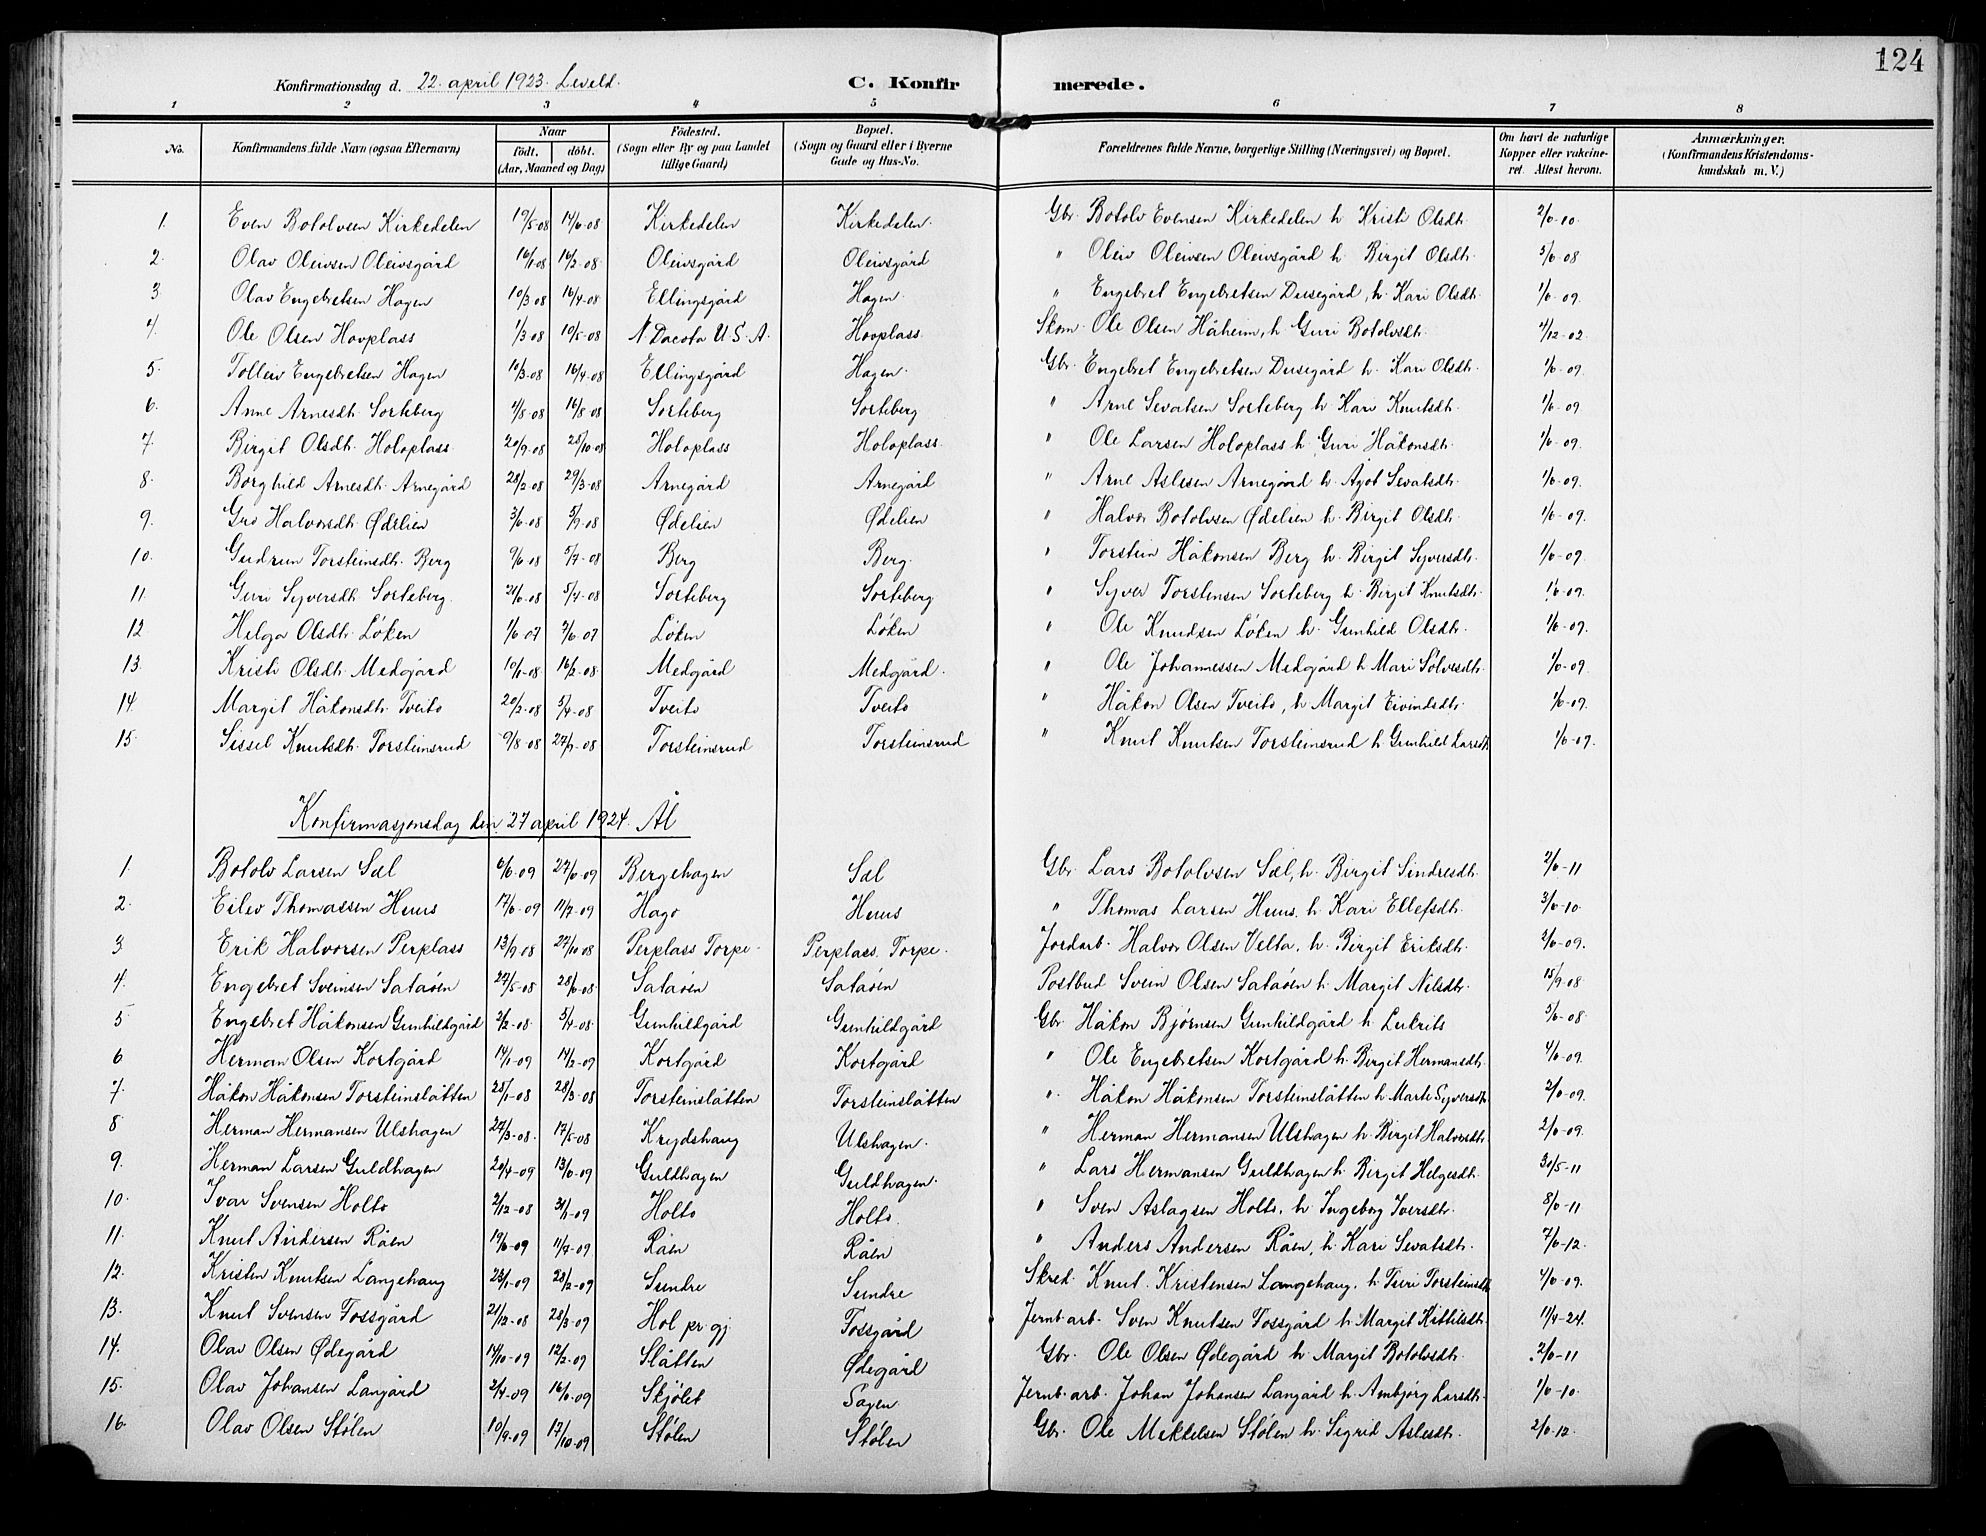 124
Konfirmationsdag d. 22. april 1923. Leveld.
C. Konfirmerede.
1 2 3 4 5 6 7 8
No. Konfirmandens fulde Navn (ogsaa Efternavn) Naar födt. döbt. (Aar, Maaned og Dag) Födested. (Sogn eller By og paa Landet tillige Gaard) Bopæl. (Sogn og Gaard eller i Byerne Gade og Hus-No. Forældrenes fulde Navne, borgerlige Stilling (Næringsvei) og Bopæl. Om havt de naturlige Kopper eller vakcineret. Attest herom. Anmærkninger. (Konfirmandens Kristendomskundskab m. V.)
1. Even Botolvsen Kirkedelen 19/5-08 14/6-08 Kirkedelen Kirkedelen. Gbr. Botolv Evensen Kirkedelen h. Kristi Olsdtr. 2/6-10.
2. Olav Oleivsen Oleivsgård 16/1-08 16/2-08 Oleivsgård Oleivsgård " Oleiv Oleivsen Oleivsgård h. Birgit Olsdtr. 3/6-08
3. Olav Engebretsen Hagen 10/3 08 16/4-08 Ellingsgård Hagen. " Engebret Engebretsen Dusegård, h. Kari Olsdtr. 1/6-09.
4. Ole Olsen Hovplass 1/3 08 10/5-08 N. Dacota U.S.A. Hovplass. Skom. Ole Olsen Håheim, h. Guri Botolvsdtr. 4/12-02.
5. Tolleiv Engebretsen Hagen 10/3-08 16/4-08 Ellingsgård Hagen. Gbr. Engebret Engebretsen Dusegård h. Kari Olsdtr. 1/6-09.
6. Anne Arnesdtr. Sorteberg 4/8-08 16/8-08 Sorteberg Sorteberg " Arne Sevatsen Sorteberg h. Kari Knutsdtr. 1/6-09
7. Birgit Olsdtr. Holoplass 20/9-08 25/10-08 Holoplass Holoplass. " Ole Larsen Holoplass h. Guri Håkonsdtr. 1/6-09.
8. Borghild Arnesdtr. Arnegård 28/2-08 29/3-08 Arnegård Arnegård " Arne Aslesen Arnegård h. Ågot Sevatsdtr. 1/6-09.
9. Gro Halvorsdtr. Ødelien 3/6-08 5/9-08 Ødelien Ødelien " Halvor Botolvsen Ødelien h. Birgit Olsdtr. 1/6-09.
10. Gudrun Torsteinsdtr. Berg 9/6 08 5/7-08 Berg Berg. " Torstein Håkonsen Berg h. Birgit Syversdtr. 1/6-09.
11. Guri Syversdtr. Sorteberg. 21/6-08 5/4-08 Sorteberg Sorteberg " Syver Torstensen Sorteberg h. Birgit Knutsdtr. 1/6-09.
12 Helga Olsdtr. Løken 1/6 07 2/6-07 Løken Løken " Ole Knudsen Løken h. Gunhild Olsdtr. 1/6-09.
13. Kristi Olsdtr. Medgård 10/1-08 16/2-08 Medgård Medgård. " Ole Johannessen Medgård h. Mari Sølvesdtr. 1/6-09.
14. Margit Håkonsdtr. Tveito 20/2-08 5/4-08 Tveito Tveito " Håkon Olsen Tveito, h. Margit Eivindsdtr. 1/6-09.
15. Sissel Knutsdtr. Torsteinsrud 9/8-08 Torsteinsrud Torsteinsrud " Knut Knutsen Torsteinsrud h. Gunhild Larsdtr. 1/6-09.
Konfirmasjonsdag den 27 april 1924. Ål
1. Botolv Larsen Sæl 6/6-09 27/6-09 Bergehagen Sæl Gbr. Lars Botolvsen Sæl, h. Birgit Sindresdtr. 2/6-11
2. Eilev Thomassen Huus 17/6-09 11/7-09 Hago Huus " Thomas Larsen Huus, h. Kari Ellefsdtr. 3/6-10.
3 Erik Halvorsen Perplass 13/9-08 27/10-08 Perplass Torpe. Perplass. Torpe. Jordarb. Halvor Olsen Velta, h. Birgit Eriksdtr. 2/6-09.
4. Engebret Sveinsen Sataøen 27/5-08 28/6-08 Sataøen Sataøen Postbud Svein Olsen Sataøen h. Margit Nilsdtr. 15/9-08
5 Engebret Håkonsen Gunhildgård 2/2-08. 5/4-08. Gunhildgård Gunhildgård Gbr. Håkon Bjørnsen Gunhildgård h. Lukrits 5/6-08
6 Herman Olsen Kortgård 14/1-09 14/2-09 Kortgård Kortgård " Ole Engebretsen Kortgård h. Birgit Hermansdtr. 4/6-09.
7. Håkon Håkonsen Torsteinslåtten 25/1-08 28/3-08 Torsteinslåtten Torsteinslåtten ". Håkon Håkonsen Torsteinslåtten h. Marte Syversdtr. 2/6-09.
8 Herman Hermansen Ulshagen 27/3-08. 17/5-08 Krydshaug Ulshagen. " Herman Hermansen Ulshagen h. Birgit Halvorsdtr. 2/6-09.
9. Herman Larsen Guldhagen 20/4-09 13/6-09 Guldhagen Guldhagen. " Lars Hermansen Guldhagen h. Birgit Helgesdtr. 30/5-11
10. Ivar Svensen Holto 2/12-08 31/1-09 Holto Holto. " Sven Aslagsen Holto, h. Ingeborg Iversdtr. 8/6-11
11. Knut Andersen Råen 19/6-09 11/7-09 Råen Råen " Anders Andersen Råen, h. Kari Sevatsdtr. 7/6-12.
12. Kristen Knutsen Langehaug 23/1-09 28/2-09 Sundre Sundre Skred. Knut Kristensen Langehaug, h. Turi Torsteinsdtr. 4/6-09.
13. Knut Svensen Fossgård 21/12-08 28/3-09 Hol pr.gj Fossgård Jernb.arb. Sven Knutsen Fossgård h. Margit Kittilsdtr. 11/4-24.
14. Olav Olsen Ødegård 14/10-09 12/2-09 Slåtten Ødegård Gbr. Ole Olsen Ødegård h. Margit Botolvsdtr. 2/6-11
15. Olav Johansen Langård 2/4-09 16/6-09 Skjølet Sagen Jernb.arb. Johan Johansen Langård h. Ambjørg Larsdtr. 1/6-10.
16. Olav Olsen Stølen 10/9-09 17/10-09 Stølen Stølen Gbr. Ole Mekkelsen Stølen h. Sigrid Aslesdtr. 2/6-12.